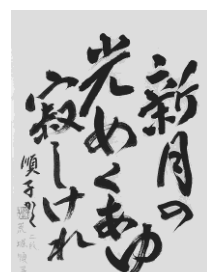 新月の
光めくあゆ
寂しけれ
順子